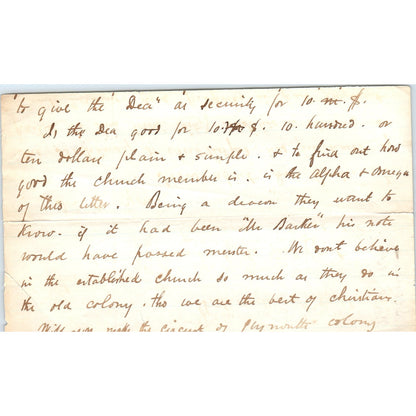 to give the "Dea" as security for 10. m. $.
Is the Dea good for 10. $. 10. hundred. or
ten dollars plain & simple. & to find out how
good the church member is. is the alpha & omega
of this letter. Being a deacon they want to
know. if it had been "Mr Barker" his note
would have passed muster. We dont believe
in the established church so much as they do in
the old colony. tho we are the best of christians.
Will you make the circuit of Plymouth colony